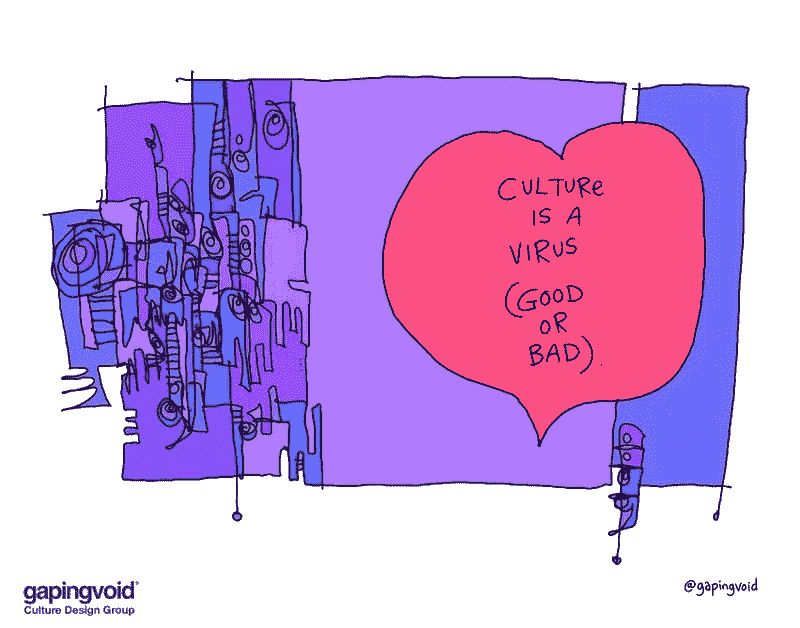 CULTURe
IS A
VIRUS
(GOOD
OR
BAD)
gapingvoid®
Culture Design Group
@gapingvoid